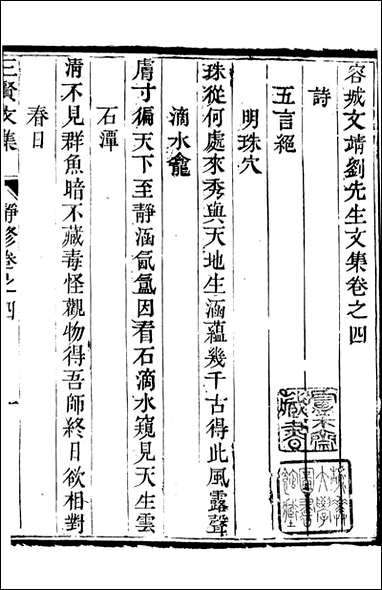 容城文靖劉先生文集卷之四
詩
五言絕
明珠穴
珠從何處來秀與天地生涵蘊幾千古得此風露聲
滴水龕
膚寸徧天下至靜涵氤氳因看石滴水窺見天生雲
石潭
清不見群魚暗不藏毒怪觀物得吾師終日欲相對
春日
三賢文集
靜修卷之四
一
藏書